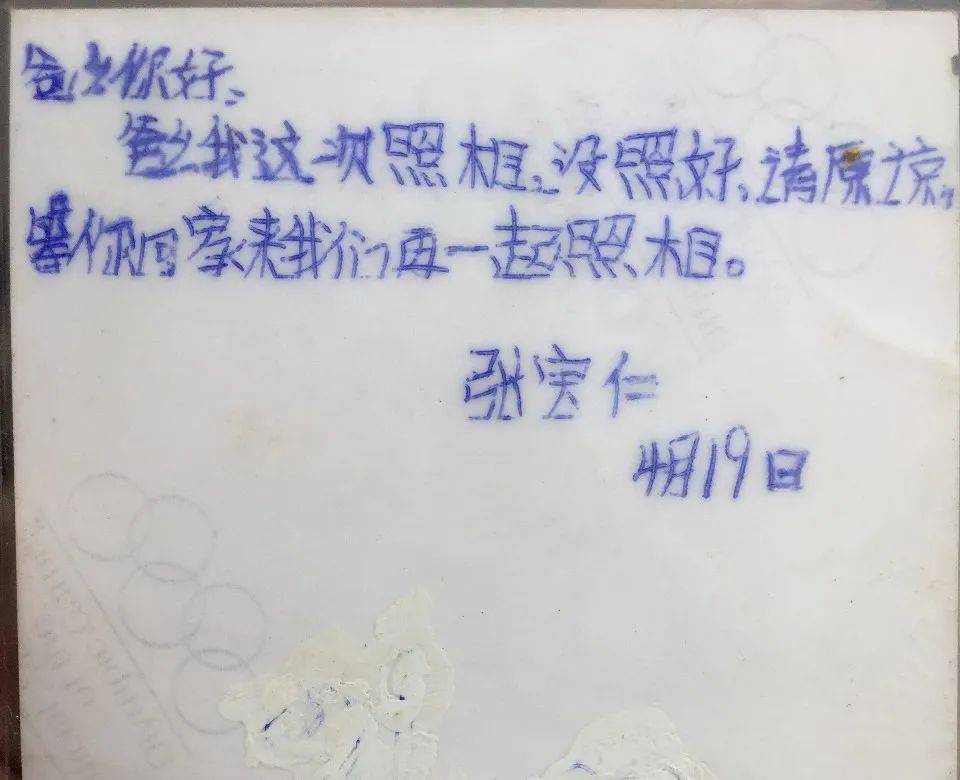 爸爸你好、
爸爸我这次照相、没照好、请原谅。
等你回家来我们再一起照相。
张宝仁
4月19日